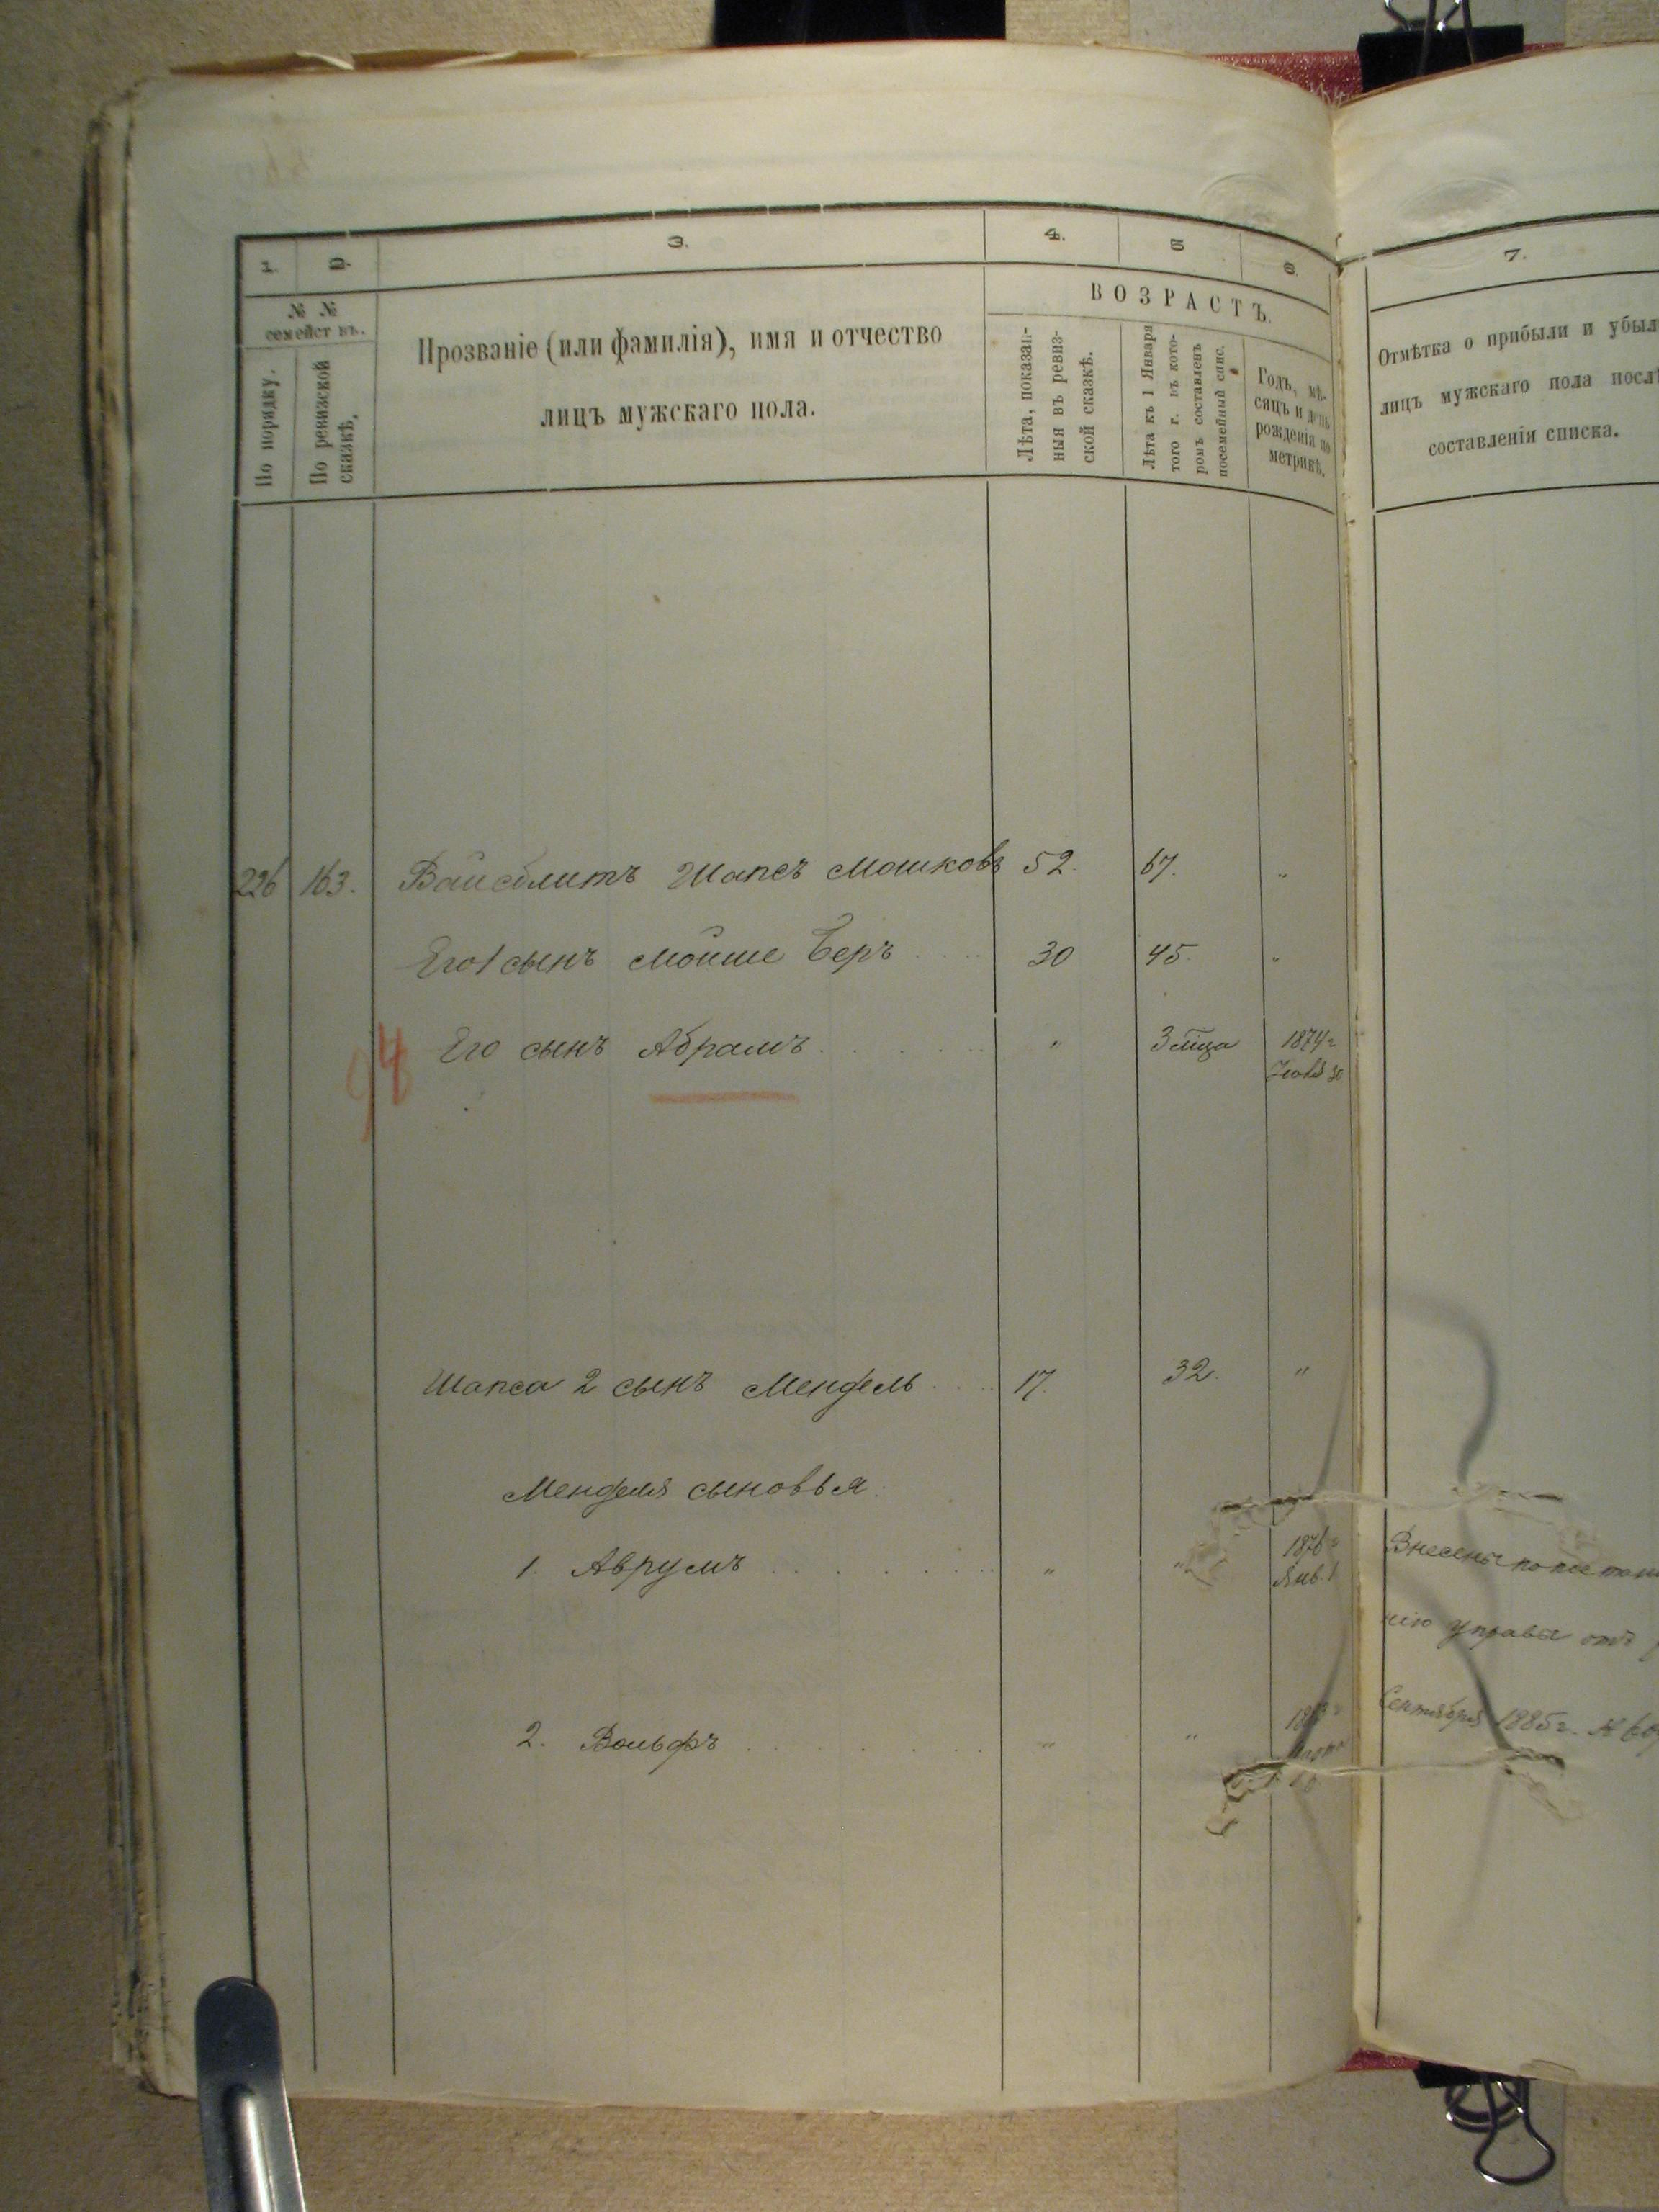 1. 2. 3. 4. 5 6. 7.
№ № семействъ.
По порядку.
По ревизской сказкѣ.
Прозваніе (или фамилія), имя и отчество
лицъ мужскаго пола.
ВОЗРАСТЪ.
Лѣта, показан-
ныя въ ревиз-
ской сказкѣ.
Лѣта къ 1 Января
того г. въ кото-
ромъ составленъ
посемейный спис.
Годъ, мѣ-
сяцъ и день
рожденія по
метрикѣ.
Отмѣтка о прибыли и убыл
лицъ мужскаго пола послѣ
составленія списка.
226 163. Вайсблитъ Шапсъ Мошковъ 52. 67. "
Его 1 сынъ Мойше Беръ 30 45. "
94 Его сынъ Абрамъ " 3 мца 1874г
30
Шапса 2 сынъ Мендель 17. 32. "
Менделя сыновья:
1. Аврумъ " " 1876г
Янв. 1
Внесены по
нію управы отъ
2. Вольфъ " "
Сентября 1885г. №